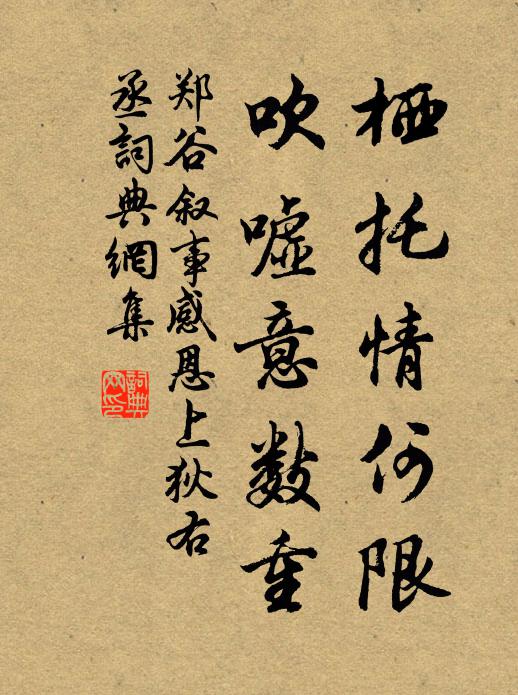 栖托情何限
吹嘘意数重
郑谷叙事感恩上狄右
丞詞典網集
詞典网印